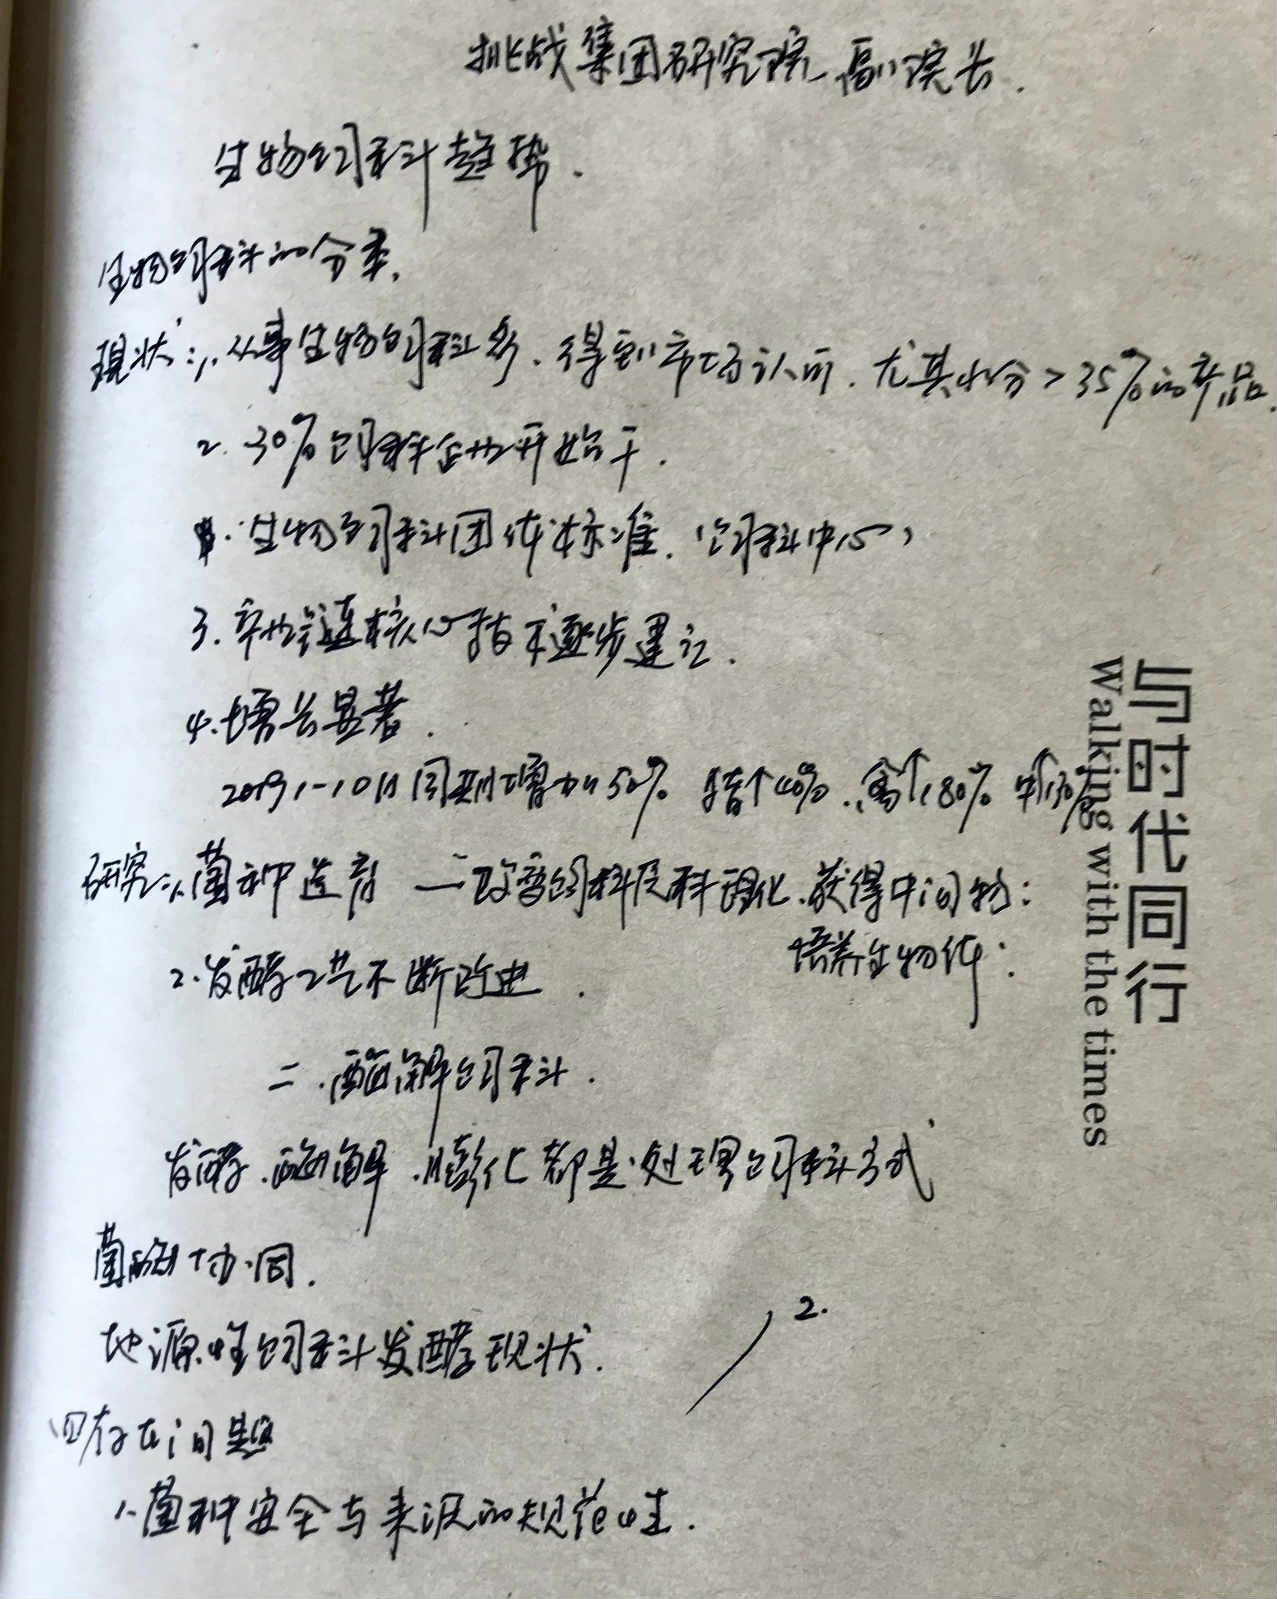 挑战集团研究院 副院长.
生物饲料趋势.
生物饲料的分类.
现状:1.从事生物饲料多、得到市场认可.尤其水分>35%的产品.
2.30%饲料企业开始干.
.生物饲料团体标准.(饲料中心)
3.产业链核心技术逐步建立.
4.增长显著.
2019 1-10月同期增加50% 猪↑40%.禽↑180% ↑30%
研究:1.菌种选育 — 改变饲料及料理化.获得中间物:
培养生物体:
2.发酵工艺不断改进.
二.酶解饲料.
发酵.酶解.膨化都是处理饲料方式
菌酶协同.
地源性饲料发酵现状.
2.
四存在问题
1.菌种安全与来源的规范性.
与时代同行
Walking with the times